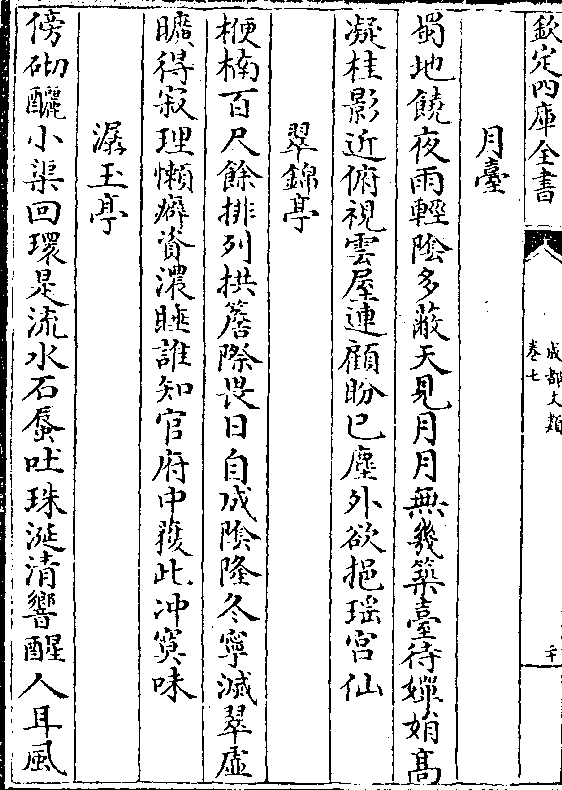 欽定四庫全書
成都文類
卷七
月臺
蜀地饒夜雨輕陰多蔽天見月月無幾築臺待嬋娟高
凝桂影近俯視雲屋連顧盼已塵外欲挹瑶宫仙
翠錦亭
楩楠百尺餘排列拱簷際畏日自成陰隆冬寧減翠虚
曠得寂理懶癖資濃睡誰知官府中獲此冲寞味
潺玉亭
傍砌釃小渠回環是流水石蜃吐珠涎清響醒人耳風